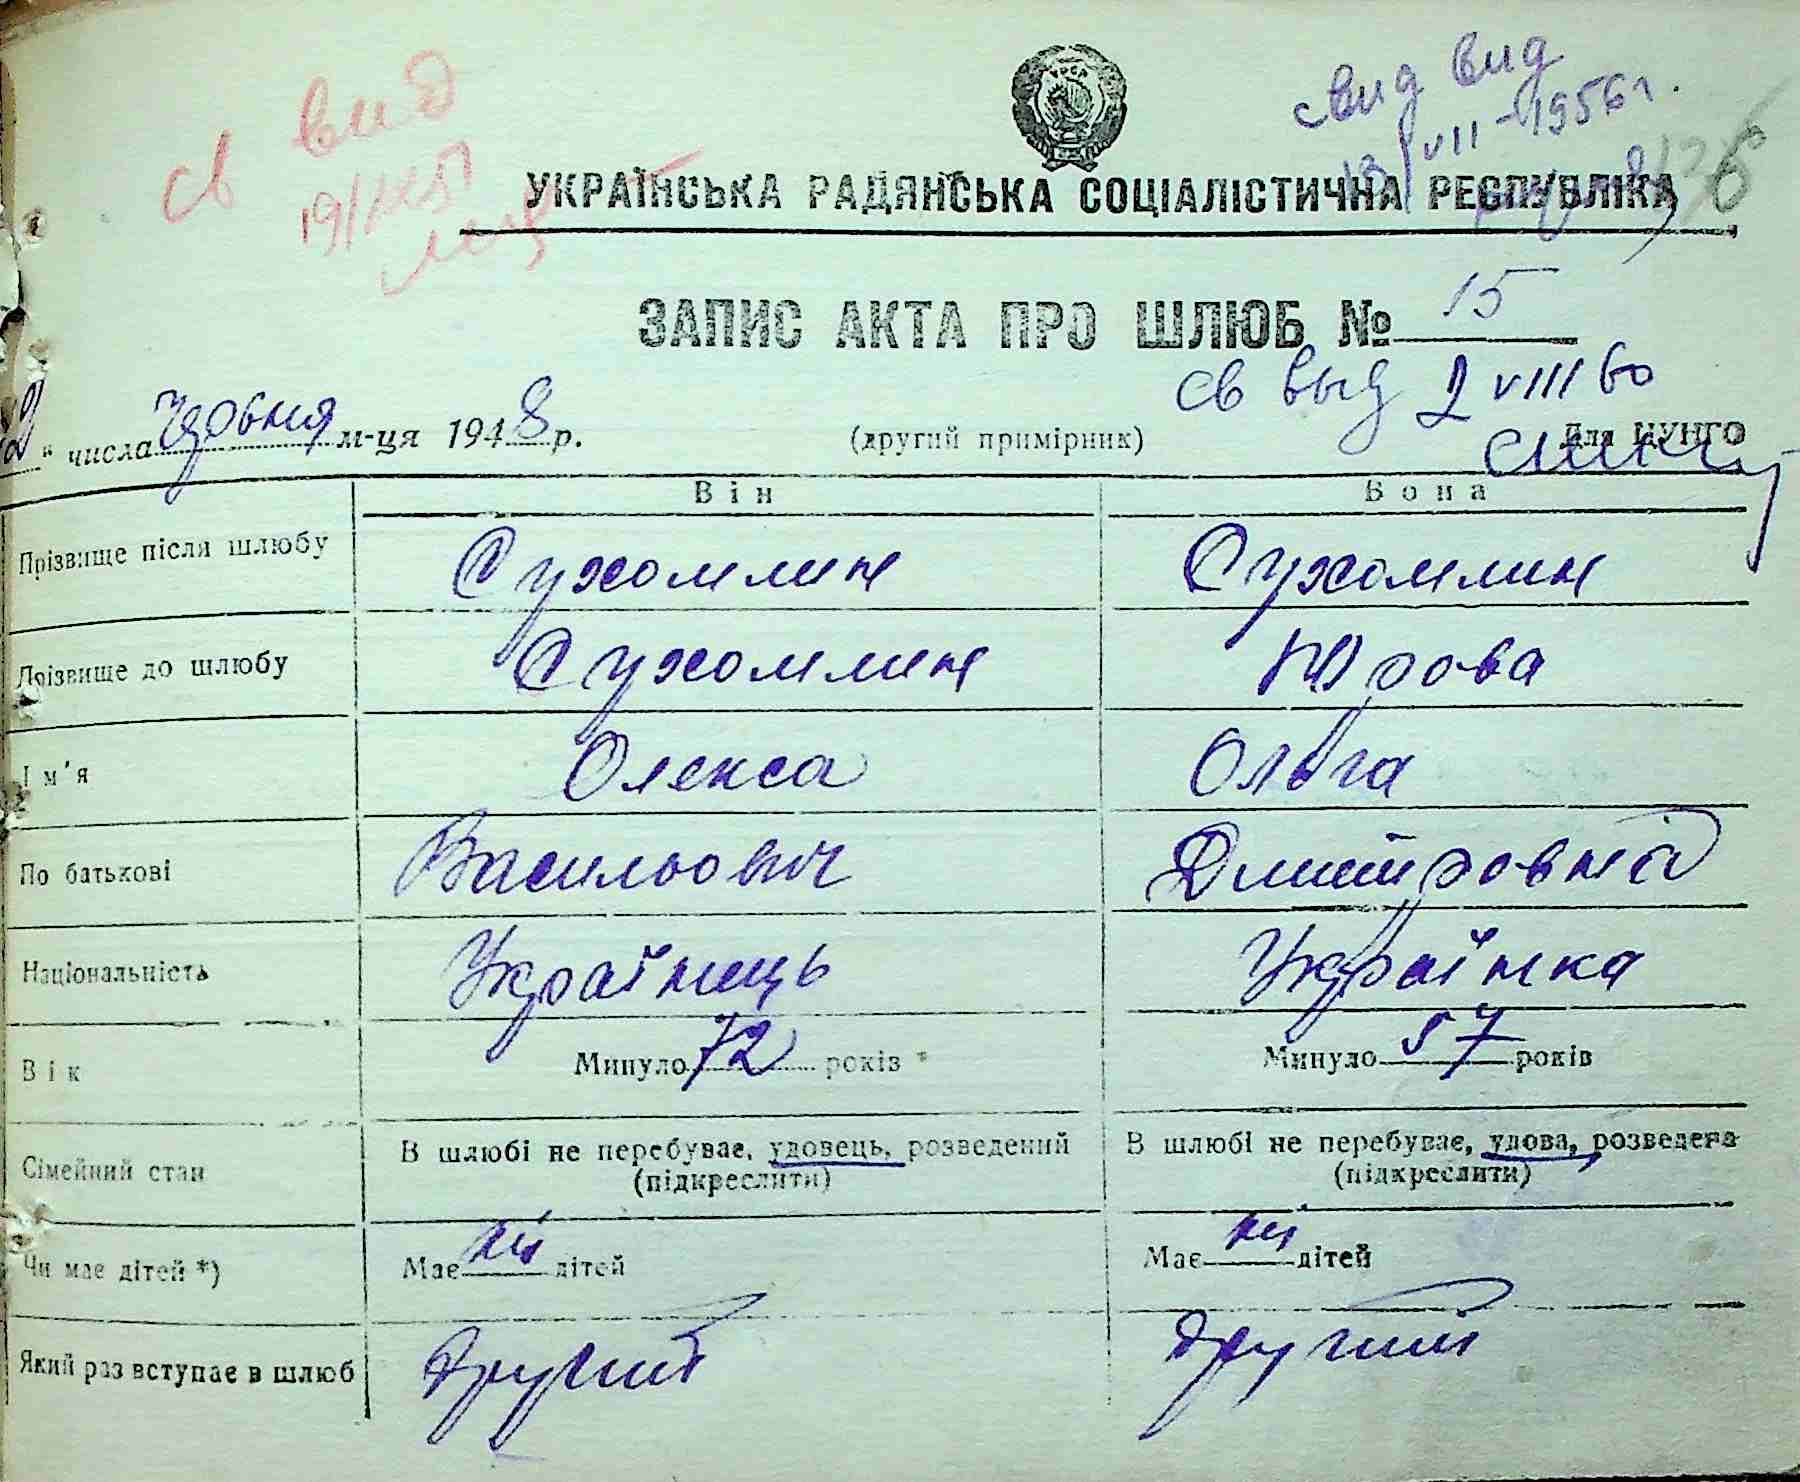 св вид
свид вид
19/
13/VII-1956г.
УРСР
УКРАЇНСЬКА РАДЯНСЬКА СОЦІАЛІСТИЧНА РЕСПУБЛІКА
6
ЗАПИС АКТА ПРО ШЛЮБ № 15
св выд 2 VIII 60
2 " числа Червня м-ця 1948 р.
(другий примірник)
Для ЦУНГО
Він Вона
Прізвище після шлюбу Сухомлин Сухомлин
Прізвище до шлюбу Сухомлин Юрова
Ім'я Олекса Ольга
По батькові Васильович Дмитровна
Національність Українець Українка
Вік Минуло 72 років Минуло 57 років
Сімейний стан В шлюбі не перебуває, удовець, розведений В шлюбі не перебуває, удова, розведена
(підкреслити) (підкреслити)
Чи має дітей *) Має ні дітей Має ні дітей
Який раз вступає в шлюб другий другий